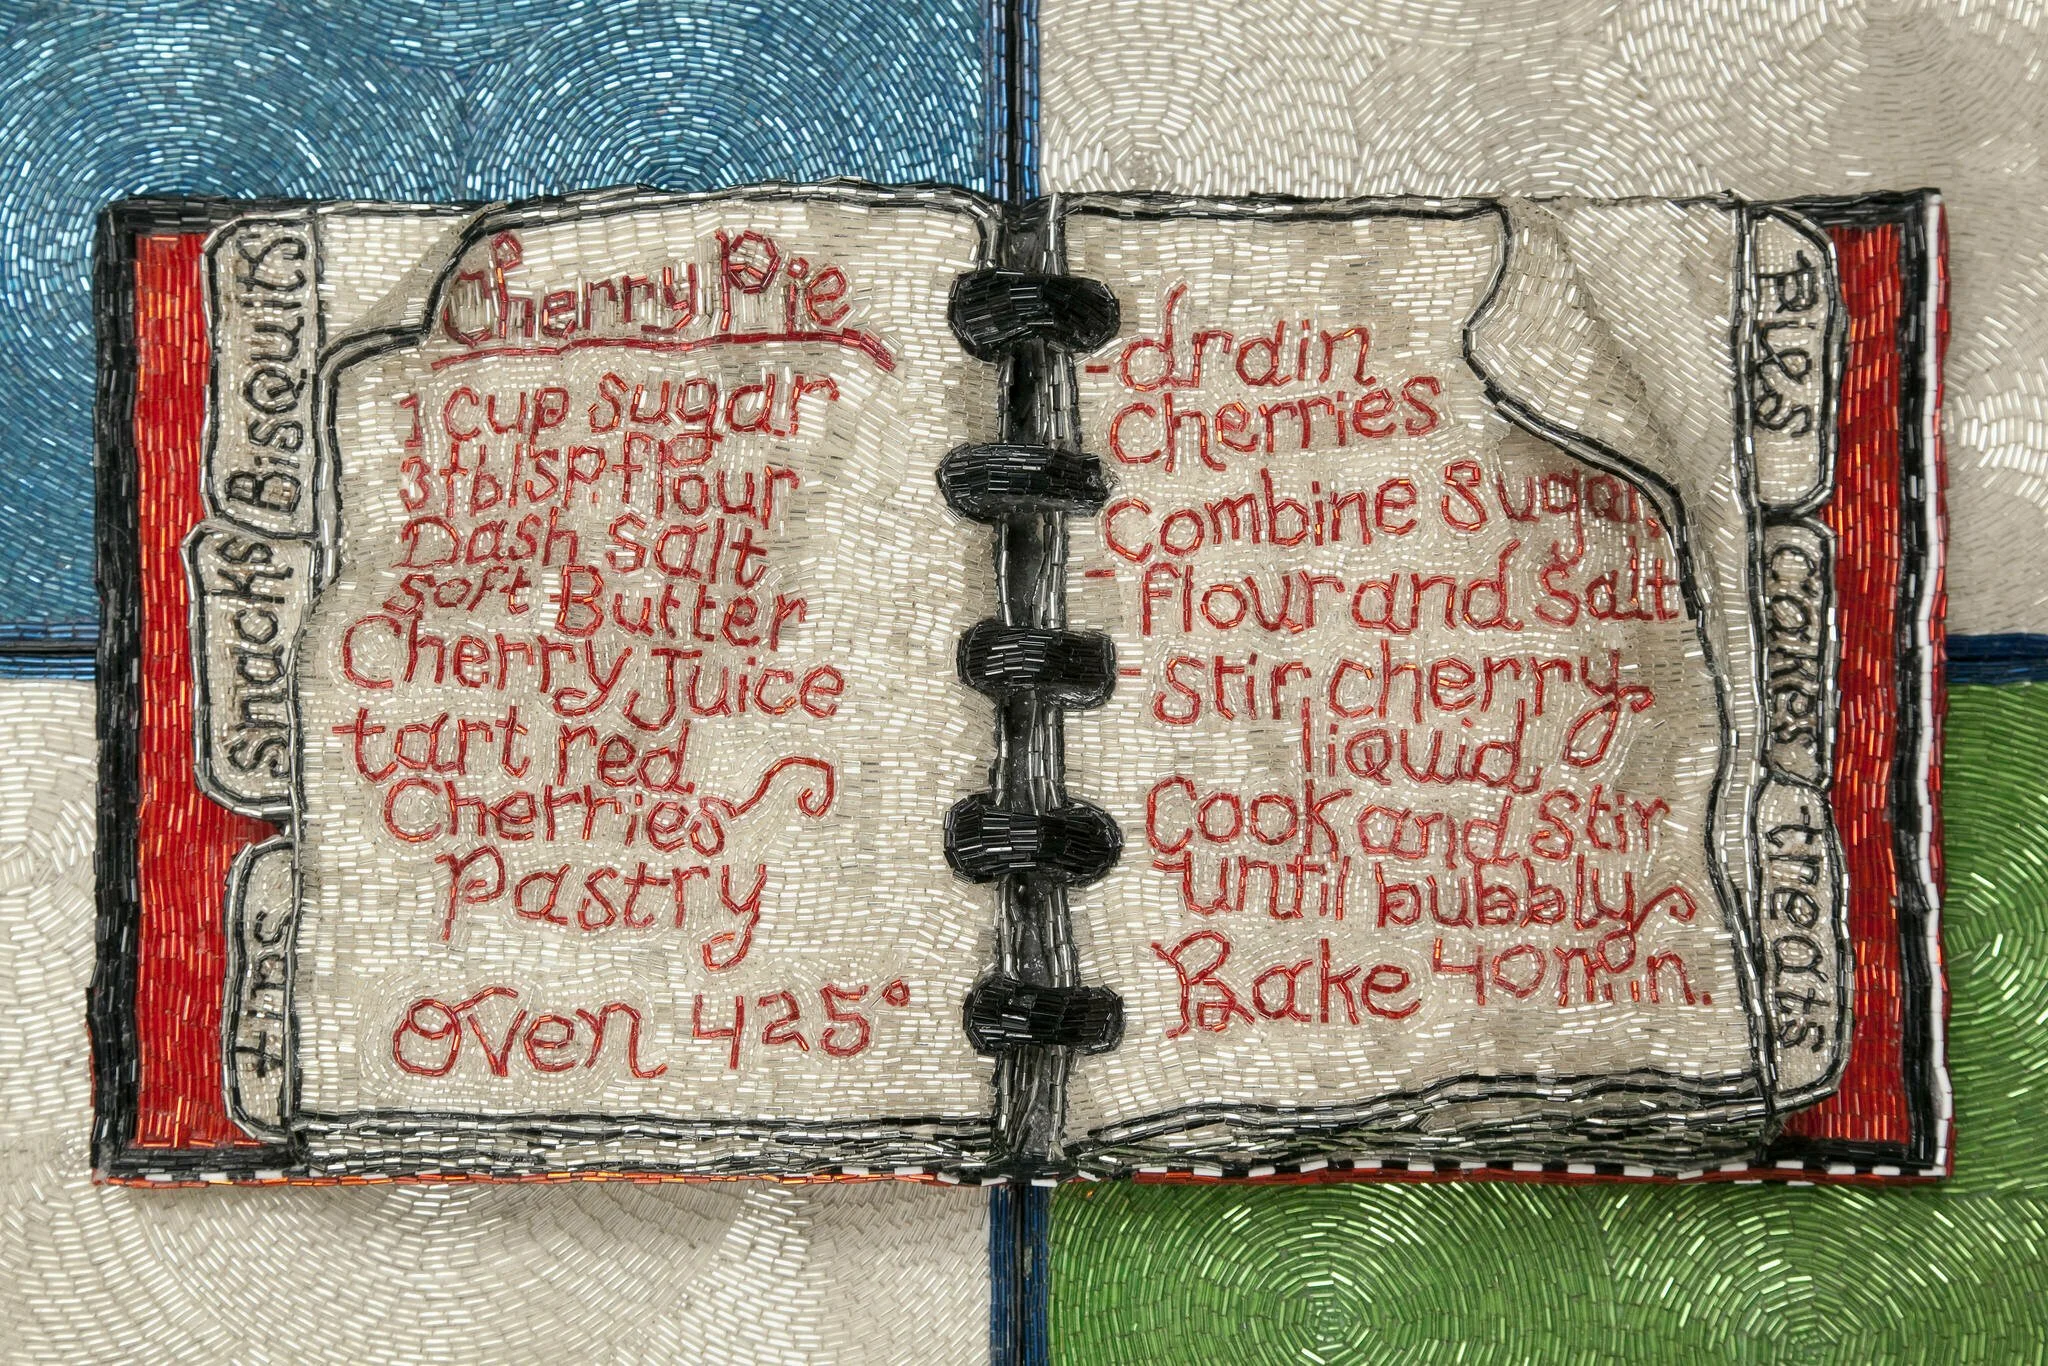 Bisquits
Snacks
Cherry Pie
1 cup sugar
3 tblsp flour
Dash salt
soft Butter
Cherry Juice
tart red
Cherries
Pastry
Oven 425°
- drain
Cherries
Combine Sugar,
- flour and Salt
- Stir cherry
liquid
Cook and Stir
until bubbly
Bake 40 min.
Pies
cakes
treats